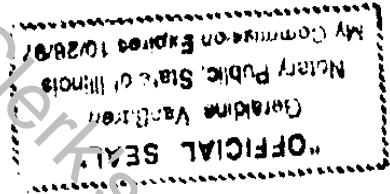 "OFFICIAL SEAL"
Geraldine
Notary Public, State of Illinois
My Commission Expires 10/28/97
Clerk's